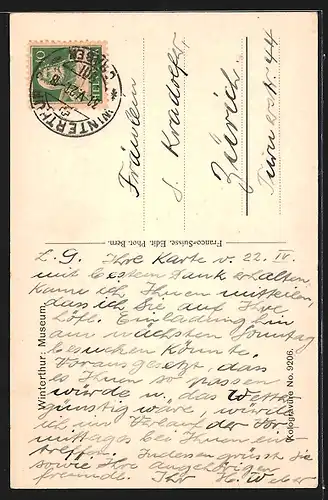 Winterthur: Museum.
Kologravüre No. 9206.
Franco-Suisse, Edit. Phot. Bern.
WINTERTHUR
HELVETIA
10
Fräulein
S. Kradolfer
Zürich
L. G. Ihre Karte v. 22. IV.
mit bestem Dank erhalten,
kann ich Ihnen mitteilen,
dass ich Sie auf Ihre
höfl. Einladung hin
am nächsten Sonntag
besuchen könnte.
Vorausgesetzt, dass
es Ihnen so passen
würde u. das Wetter
günstig wäre, würde
ich im Verlauf der Vor-
mittages bei Ihnen ein-
treffen. Indessen grüsst sie
sowie Ihre angehörigen
freundl. Ihr H. Weber